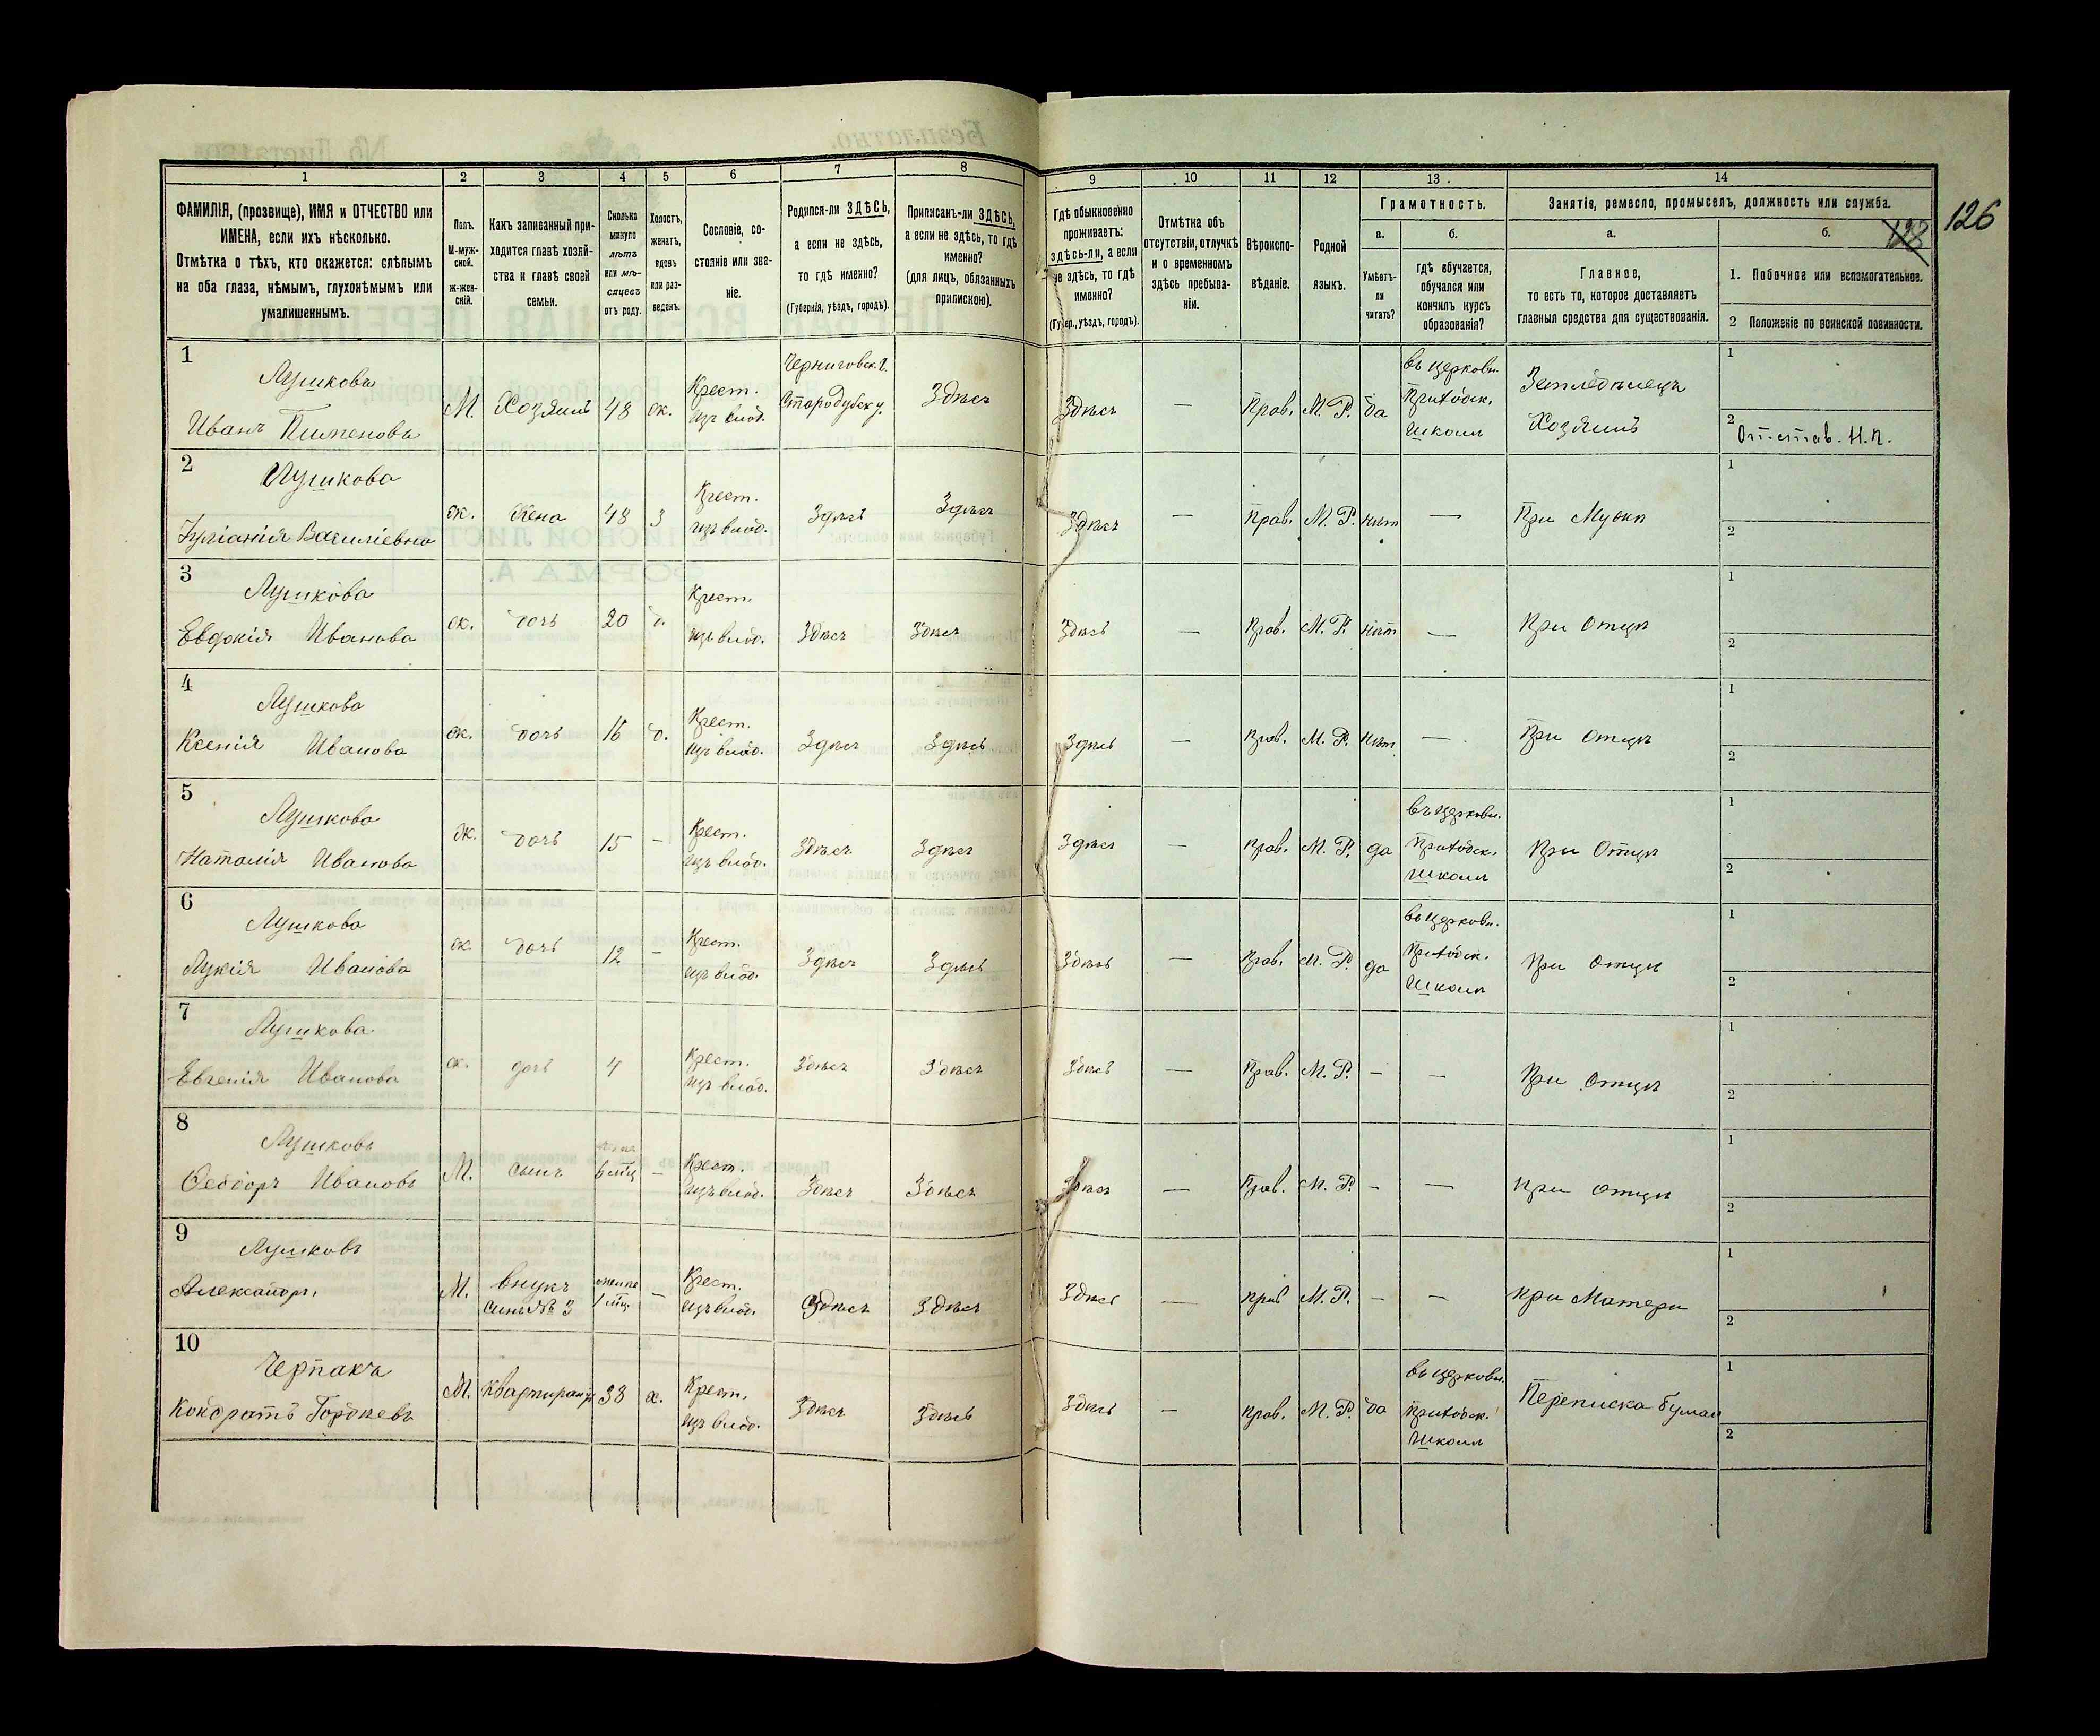 1 2 3 4 5 6 7 8 9 10 11 12 13 14
ФАМИЛІЯ, (прозвище), ИМЯ и ОТЧЕСТВО или
ИМЕНА, если ихъ нѣсколько.
Отмѣтка о тѣхъ, кто окажется: слѣпымъ
на оба глаза, нѣмымъ, глухонѣмымъ или
умалишеннымъ.
Полъ.
М-муж-
ской.
ж-жен-
скій.
Какъ записанный при-
ходится главѣ хозяй-
ства и главѣ своей
семьи.
Сколько
минуло
лѣтъ
или мѣ-
сяцевъ
отъ роду.
Холостъ,
женатъ,
вдовъ
или раз-
веденъ.
Сословіе, со-
стояніе или зва-
ніе.
Родился-ли ЗДѢСЬ,
а если не здѣсь,
то гдѣ именно?
(Губернія, уѣздъ, городъ).
Приписанъ-ли ЗДѢСЬ,
а если не здѣсь, то гдѣ
именно?
(для лицъ, обязанныхъ
припискою).
Гдѣ обыкновенно
проживаетъ:
здѣсь-ли, а если
не здѣсь, то гдѣ
именно?
(Губер., уѣздъ, городъ).
Отмѣтка объ
отсутствіи, отлучкѣ
и о временномъ
здѣсь пребыва-
ніи.
Вѣроиспо-
вѣданіе.
Родной
языкъ.
Грамотность.
а.
Умѣетъ-
ли
читать?
б.
гдѣ обучается,
обучался или
кончилъ курсъ
образованія?
Занятія, ремесло, промыселъ, должность или служба.
а.
Главное,
то есть то, которое доставляетъ
главныя средства для существованія.
б.
1. Побочное или вспомогательное.
2 Положеніе по воинской повинности.
128
126
1
Лушковъ
Иванъ Пименовъ
М. Хозяинъ 48 ж.
Крест.
изъ влад.
Черниговск. г.
Стародубск у.
Здѣсь
Здѣсь — Прав. М. Р. да
въ церковн.
Приходск.
Школѣ
Земледѣлецъ
Хозяинъ
1
2 Отстав. Н. П.
2
Лушкова
Іуліанія Василіевна
ж. Жена 48 З
Крест.
изъ влад.
Здѣсь Здѣсь
Здѣсь — Прав. М. Р. нѣт — При Мужѣ
1
2
3
Лушкова
Евдокія Иванова
ж. дочь 20 д.
Крест.
изъ влад.
Здѣсь Здѣсь
Здѣсь — Прав. М. Р. нѣт — При Отцѣ
1
2
4
Лушкова
Ксенія Иванова
ж. дочь 16 д.
Крест.
изъ влад.
Здѣсь Здѣсь
Здѣсь — Прав. М. Р. нѣт — При Отцѣ
1
2
5
Лушкова
Наталія Иванова
ж. дочь 15 –
Крест.
изъ влад.
Здѣсь Здѣсь
Здѣсь — Прав. М. Р. да
въ церковн.
Приходск.
Школѣ
При Отцѣ
1
2
6
Лушкова
Лукія Иванова
ж. дочь 12 –
Крест.
изъ влад.
Здѣсь Здѣсь
Здѣсь — Прав. М. Р. да
въ церковн.
Приходск.
Школѣ
При Отцѣ
1
2
7
Лушкова
Евгенія Иванова
ж. дочь 4
Крест.
изъ влад.
Здѣсь Здѣсь
Здѣсь — Прав. М. Р. – — При Отцѣ
1
2
8
Лушковъ
Ѳеодоръ Ивановъ
М. сынъ 6 мц –
Крест.
изъ влад.
Здѣсь Здѣсь
Здѣсь — Прав. М. Р. – — При отцѣ
1
2
9
Лушковъ
Александръ
М. внукъ
сынъ № 3
менѣе
1 мц. –
Крест.
изъ влад.
Здѣсь Здѣсь
Здѣсь — прав М. Р. – — при Матери
1
2
10
Черпакъ
Кондратъ Гордѣевъ
М. квартирантъ 38 х.
Крест.
изъ влад.
Здѣсь Здѣсь
Здѣсь — прав. М. Р. да
въ церковн.
Приходск.
Школѣ
Переписка бумаг
1
2